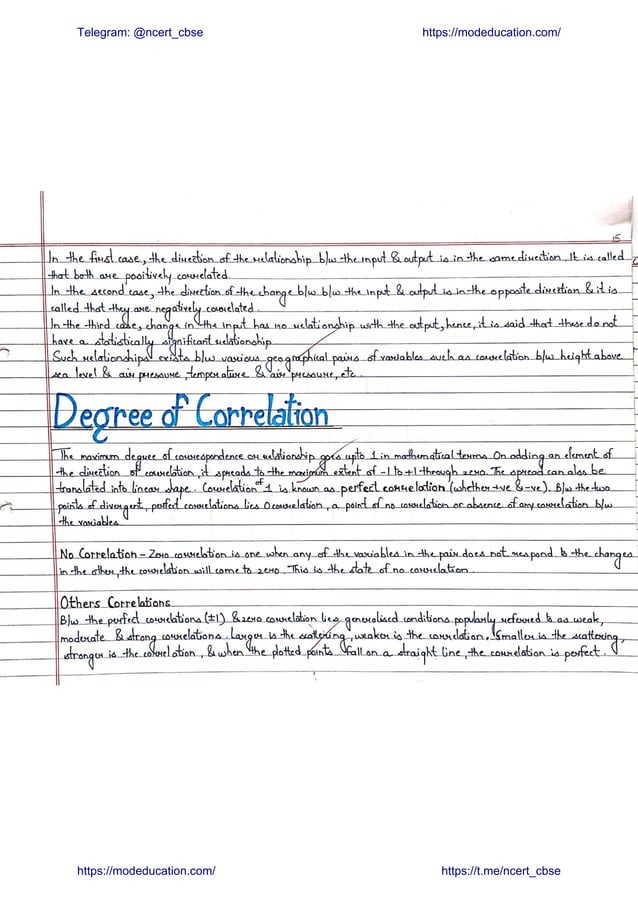 Telegram: @ncert_cbse https://modeducation.com/
15
In the first case, the direction of the relationship b/w the input & output is in the same direction. It is called
that both are positively correlated.
In the second case, the direction of the change b/w b/w the input & output is in the opposite direction & it is
called that they are negatively correlated.
In the third case, change in the input has no relationship with the output, hence, it is said that these do not
have a statistically significant relationship.
Such relationships exists b/w various geographical pairs of variables such as correlation b/w height above
sea level & air pressure, temperature & air pressure, etc.
Degree of Correlation
The maximum degree of correspondence or relationship goes upto 1 in mathematical terms. On adding an element of
the direction of correlation, it spreads to the maximum extent of -1 to +1 through zero. The spread can also be
translated into linear shape. Correlation of 1 is known as perfect correlation (whether +ve & -ve). B/w the two
points of divergent, perfect correlations lies 0 correlation, a point of no correlation or absence of any correlation b/w
the variables.
No Correlation - Zero correlation is one when any of the variables in the pair does not respond to the changes
in the other, the correlation will come to zero. This is the state of no correlation.
Others Correlations
B/w the perfect correlations (±1) & zero correlation lies generalised conditions popularly referred to as weak,
moderate & strong correlations. Larger is the scattering, weaker is the correlation. Smaller is the scattering,
stronger is the correlation, & when the plotted points fall on a straight line, the correlation is perfect.
https://modeducation.com/ https://t.me/ncert_cbse